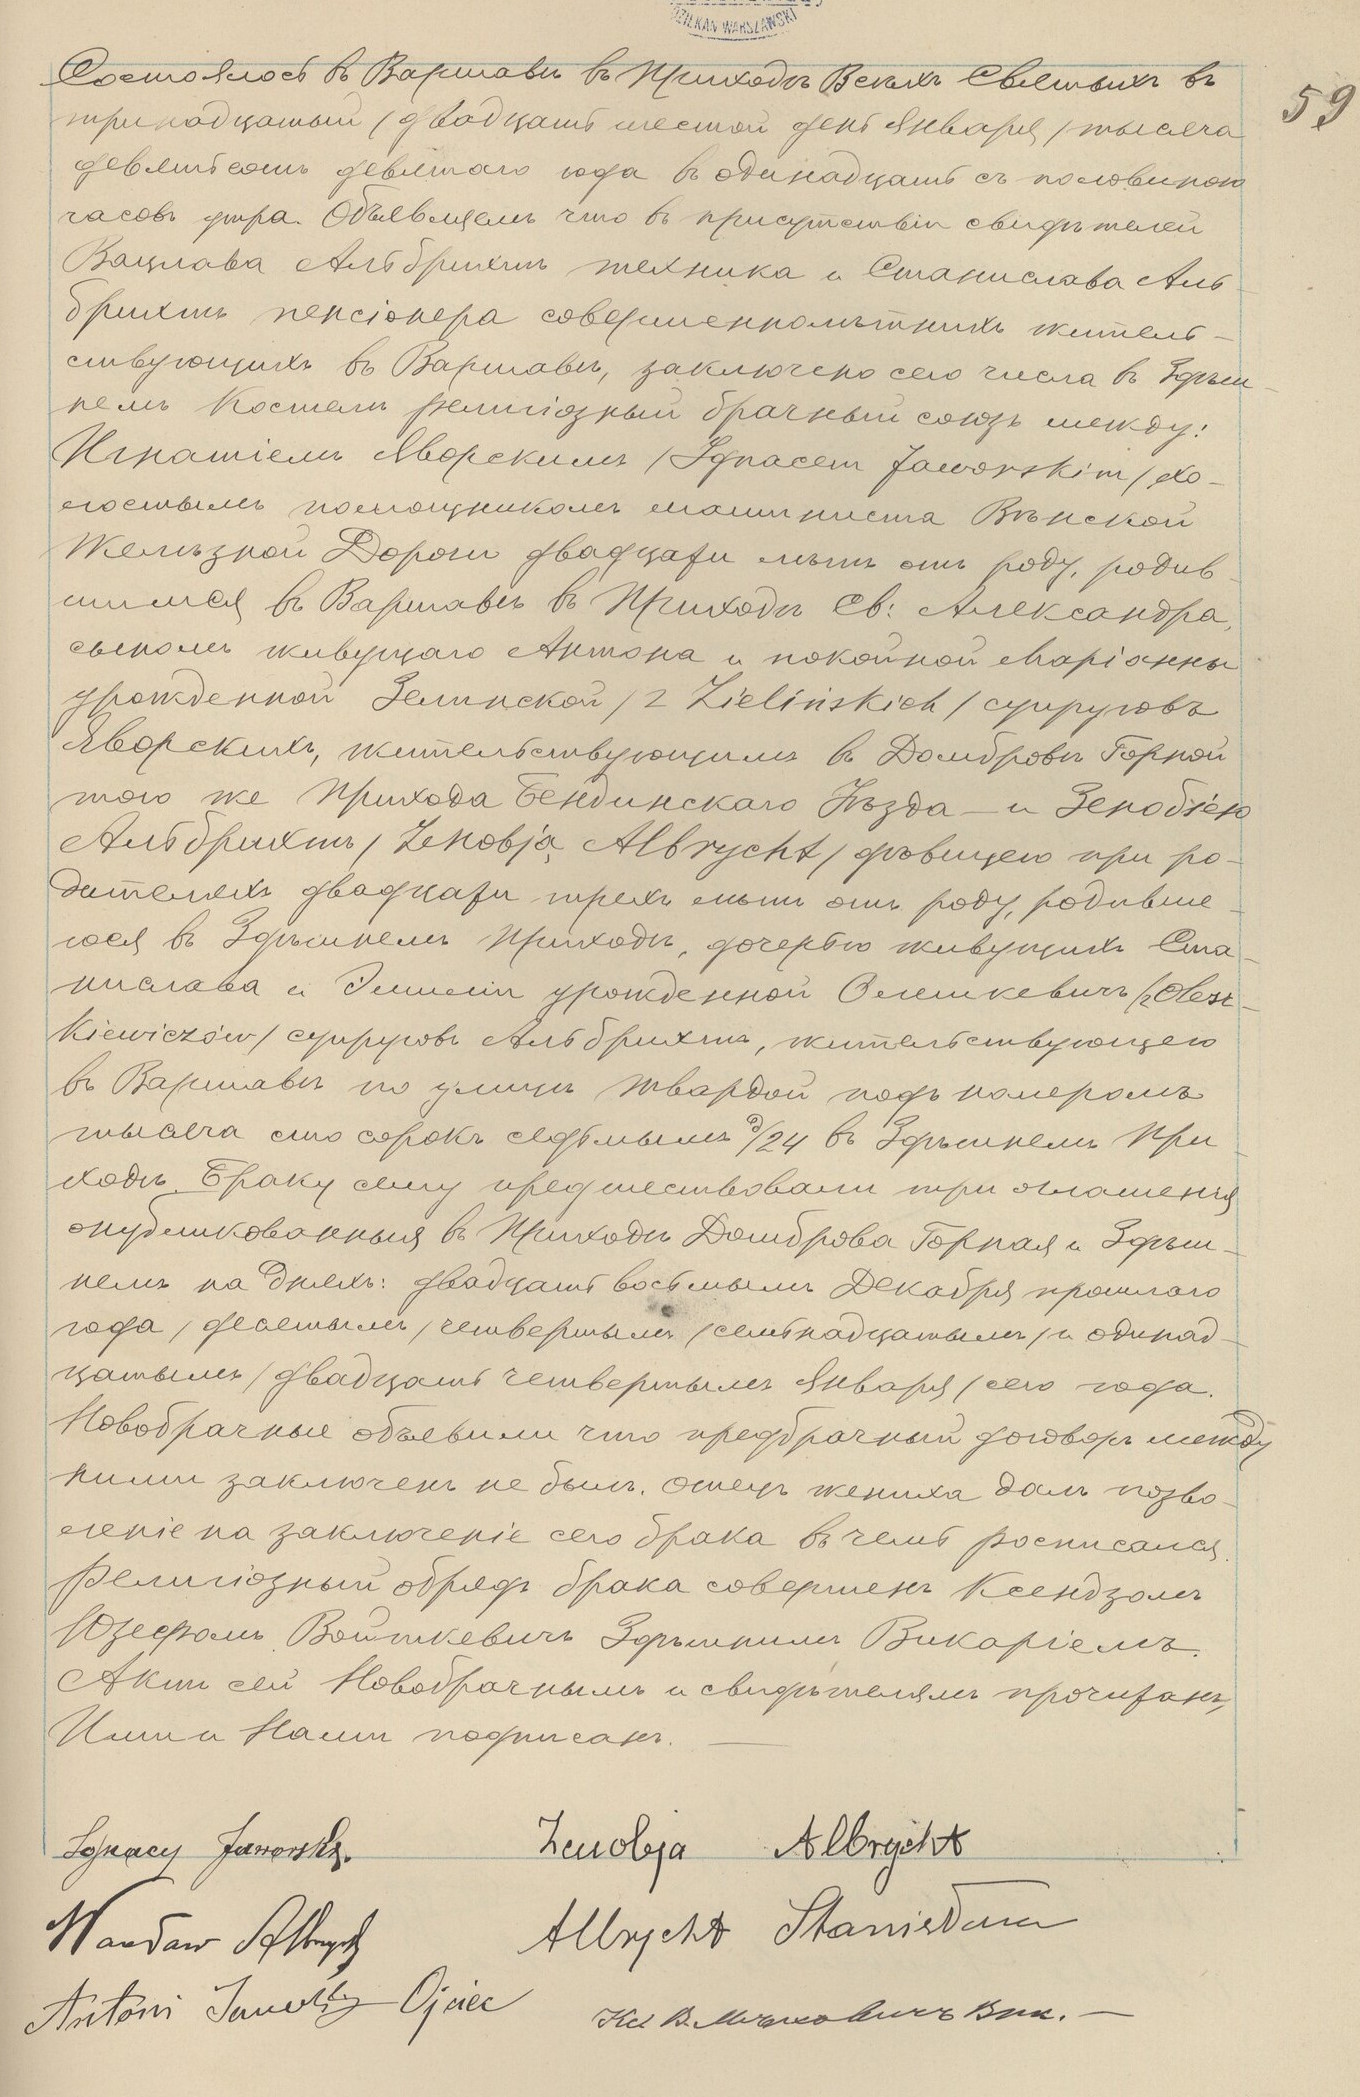 DZIEKAN WARSZAWSKI
59
Состоялось въ Варшавѣ въ Приходѣ Всѣхъ Святыхъ въ
тринадцатый / двадцать шестой день Января / тысяча
девятьсотъ девятаго года въ одинадцать съ половиною
часовъ утра. Объявляемъ что въ присутствіи свидѣтелей
Вацлава Альбрихтъ техника и Станислава Аль
брихтъ пенсіонера совершеннолѣтнихъ житель–
ствующихъ въ Варшавѣ, заключено сего числа въ Здѣш–
немъ Костелѣ религіозный брачный союзъ между:
Игнатіемъ Яворскимъ / Ignacem Jaworskim / хо–
лостымъ помощникомъ машиниста Вѣнской
Желѣзной Дороги двадцати лѣтъ отъ роду, родив–
шимся въ Варшавѣ въ Приходѣ Св: Александра,
сыномъ живущаго Антона и покойной Маріанны
урожденной Зелинской / z Zielińskich / супруговъ
Яворскихъ, жительствующимъ въ Домбровѣ Горной
того же Прихода Бендинскаго Уѣзда – и Зенобіею
Альбрихтъ / Zenobją Albrycht / дѣвицею при ро–
дителяхъ двадцати трехъ лѣтъ отъ роду, родивше–
юся въ Здѣшнемъ Приходѣ, дочерью живущихъ Ста–
нислава и Эмиліи урожденной Олешкевичъ / z Olesz–
kiewiczów / супруговъ Альбрихтъ, жительствующею
въ Варшавѣ по улицѣ Твардой подъ номеромъ
тысяча сто сорокъ седьмымъ д/24 въ Здѣшнемъ При
ходѣ. Браку сему предшествовали три оглашенія
опубликованныя въ Приходѣ Домброва Горная и Здѣш–
немъ на дняхъ: двадцать восьмымъ Декабря прошлаго
года / десятымъ, четвертымъ / семнадцатымъ / и одинад–
цатымъ / двадцать четвертымъ Января / сего года.
Новобрачные объявили что предбрачный договоръ между
ними заключенъ не былъ. Отецъ жениха далъ позво–
леніе на заключеніе сего брака въ чемъ росписался.
Религіозный обрядъ брака совершенъ Ксендзомъ
Юзефомъ Войткевичъ Здѣшнимъ Викаріемъ.
Актъ сей Новобрачнымъ и свидѣтелямъ прочитанъ,
Ими и Нами подписанъ. —
Ignacy Jaworski. Zenobja Albrycht
Wacław Albrycht Albrycht Stanisław
Antoni Jaworski Ojciec Кс. В. Вик. —